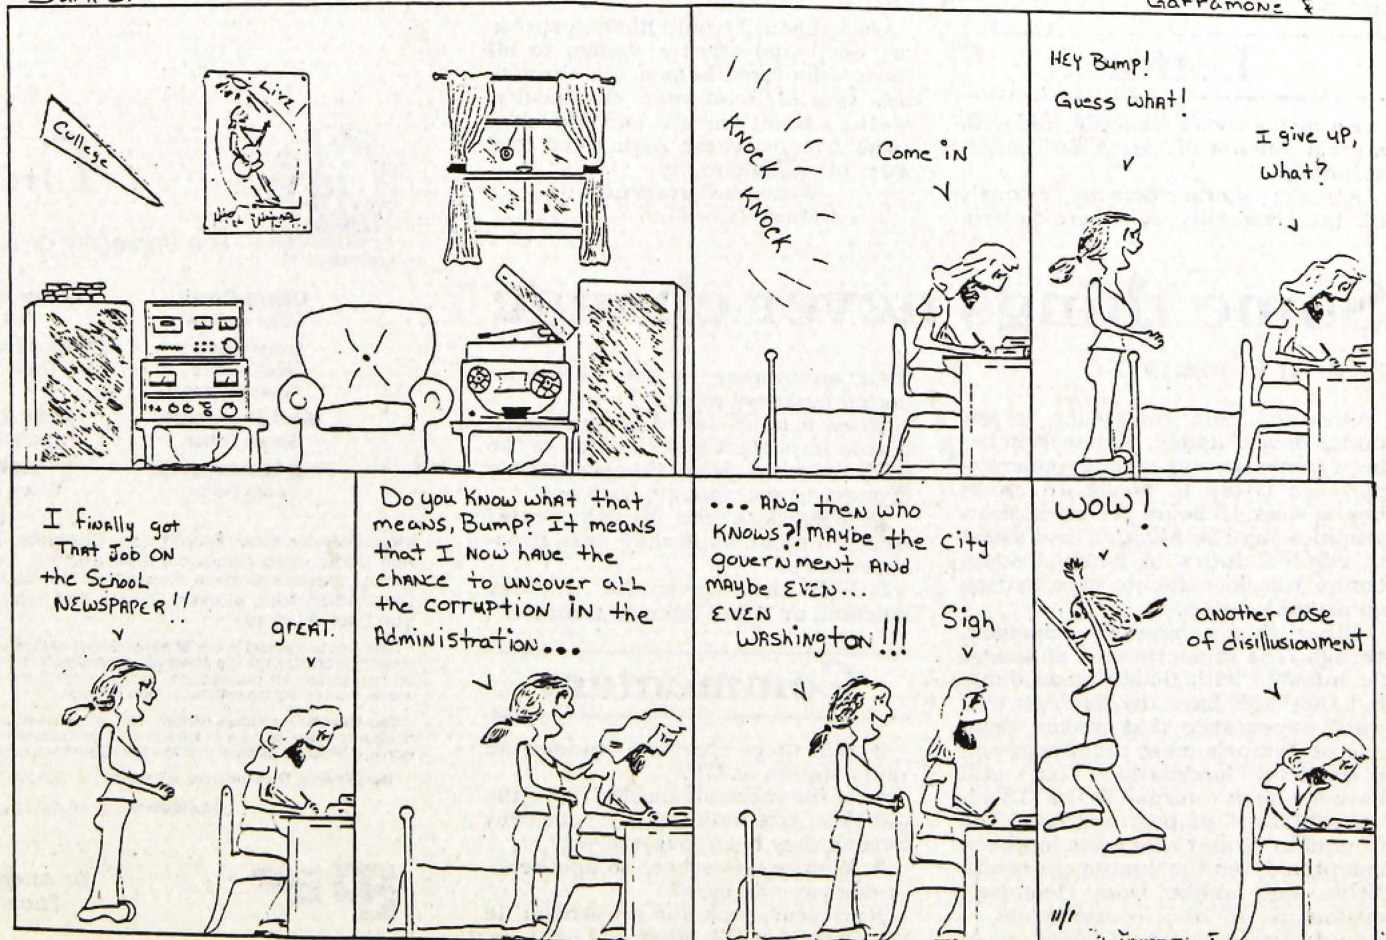 Garramone
College
Live
KNOCK
KNOCK
Come in
HEY Bump!
Guess what!
I give up,
What?
I finally got
That Job ON
the School
NEWSPAPER!!
great.
Do you know what that
means, Bump? It means
that I now have the
chance to uncover all
the corruption in the
Administration...
... And then who
knows?! Maybe the City
government And
maybe even...
EVEN
WAShington!!!
Sigh
WOW.
another case
of disillusionment
11/1